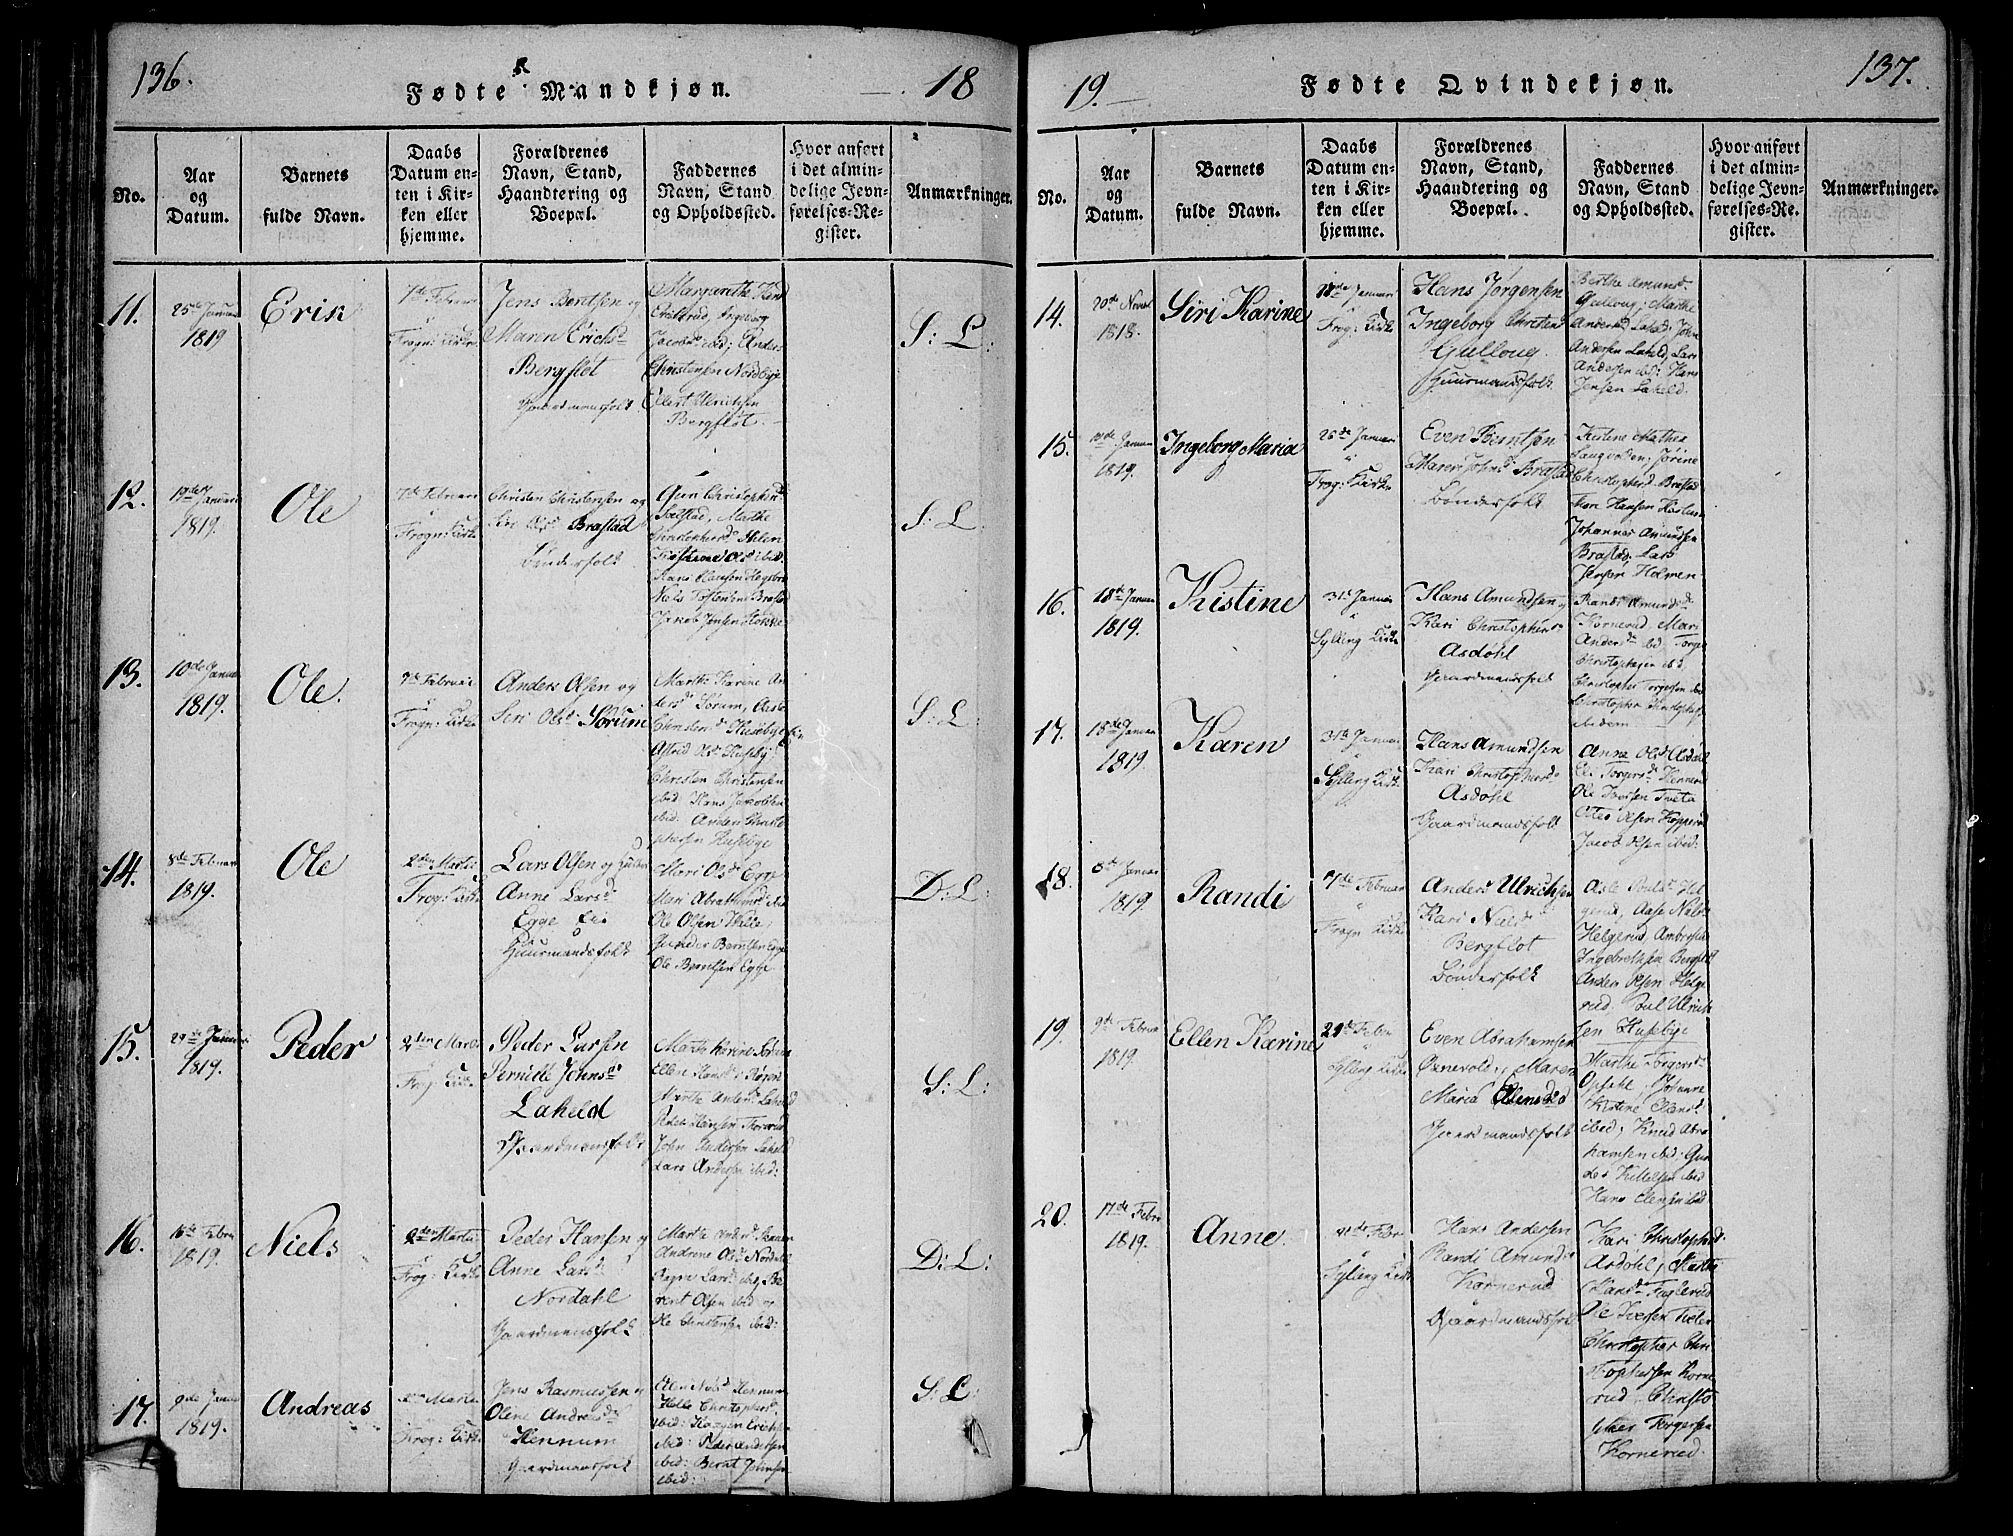 136.
Fødte Mandkjøn.
18
No.
Aar
og
Datum.
Barnets
fulde Navn.
Daabs
Datum en-
ten i Kir-
ken eller
hjemme.
Forældrenes
Navn, Stand,
Haandtering og
Boepæl.
Faddernes
Navn, Stand
og Opholdssted.
Hvor anført
i det almin-
delige Jevn-
førelses-Re-
gister.
Anmærkninger.
11.
25de Januar
1819
Erik
7de Februar
Frogn: Kirke
Jens Berntsen og
Maren Erichs-
Bergfløt
Gaardmansfolk
Margarethe
Ingeborg
Jacobsd ibid; Anders
Christensen Nordbye
Ellert Ulrichsen
Bergfløt.
S: L:
12.
Januar
1819.
Ole
7de Februar
Frogn: Kirke
Christen Christensen og
Siri Olsd Brastad
Bønderfolk
Gun Christophersd
Mathe
Kistine Olsd ibid
Hans Hansen
Niels Brastad
Jakob Jensen
S: L:
13.
10de Januar
1819.
Ole.
7de Februar
Frogn: Kirke
Anders Olsen og
Siri Olsd: Sørum
Marthe Karine An-
dersd Sorum,
Husebye
Astrid Olsd Huseby;
Christen Christensen
ibid: Hans Jakobsen
ibid: Anders Christo-
phersen Husebye
S: L:
14.
8de Februar
1819.
Ole
2den Martii
Frogn: Kirke
Lars Olsen og
Anne Larsd
Egge Eie
Huusmandsfolk
Mari Olsd Egge
Mari Abrahamsd ibid
Ole Olsen
Gunder Berntsen Egge
Ole Berntsen Egge
D: L:
15.
29de Januar
1819.
Peder
2den Marti
Frog: Kirke
Peder Larsen
Pernille Johnsd
Laheld
Gaardmandsfolk
Marthe Karine Sørum
Ellen Hansd
Marthe Andersd Laheld
Peder Hansen
John Andersen Laheld
Lars Andersen ibid:
S: L:
16.
Febru
1819.
Niels
2den Martii
Frog: Kirke
Peder Hansen og
Anne Larsd
Nordahl
Gaardmansfolk
Marthe
Andrene Olsd Nordahl
Larsd ibid, Be-
rent Olsen ibid og
Ole Christensen ibid:
D: L:
17.
9de Janu
1819.
Andreas
Martii
Frog: Kirke
Jens Rasmussen og
Olene Andreasd
Hennum
Gaardmandsfolk
Ellen Nielsd Hennum
Helle Christophersd
ibid: Haagen Erichsen
ibid: Peder Andersen
ibid: Bernt Johnsen
ibid:
S: L:
19.
Fødte Qvindekjøn.
137.
No.
Aar
og
Datum.
Barnets
fulde Navn.
Daabs
Datum en-
ten i Kir-
ken eller
hjemme.
Forældrenes
Navn, Stand,
Haandtering og
Boepæl.
Faddernes
Navn, Stand
og Opholdssted.
Hvor anført
i det almin-
delige Jevn-
førelses-Re-
gister.
Anmærkninger.
14.
20de Novbr
1818.
Siri Karine
Januar
Frog: Kirke
Hans Jørgensen
Ingeborg Christens
Gulloug.
Huusmandsfolk
Berthe Amunds
Gulloug; Marthe
Andersd Laheld; John
Andersen Laheld, Lars
Andersen ibid: Hans
Jensen Laheld.
15.
Januar
1819.
Ingeborg Maria
25de Januar
Frog: Kirke
Even Berntsen
Maren Johnsd Brastad
Bønderfolk
Kistine Mathea
Jørine
Christophersd Brastad
Hansen
Johannes Amundsen
Brastad, Lars
Jensen Holmen
16.
18de Januar
1819.
Kistine
31te Januar
Sylling Kirke
Hans Amundsen og
Kari Christophersd
Asdøhl
Gaardmandsfolk
Randi Amundsd
Kornerud, Mari
Andersd ibid Torger
Christophersen ibid
Christopher Torgersen ibid
Christopher Christophersen
ibidem
17.
18de Januar
1819.
Karen
31te Januar
Sylling Kirke
Hans Amundsen
Kari Christophersd
Asdøhl
Gaardmandsfolk
Anne Olsd Asdøhl
Eli Torgersd
Ole Iversen Tveta
Otter Olsen Kopperud
Jacob Olsen ibid:
18.
8de Januar
1819.
Randi
7de Februar
Frogn Kirke
Anders Ulrichsen
Kari Nielsd
Bergfløt
Bønderfolk
Asle Poulsd Hel-
gerud, Aase Nielsd
Helgerud, Ambrosius
Ingebrethsen Bergfløt
Anders Olsen Helge-
rud, Poul Ulrich-
sen Husebye
19.
9de Februar
1819.
Ellen Karine
21de Febru
Sylling Kirke
Even Abrahamsen
Øxnevold, Maren
Maria
Gaardmandsfolk
Marthe Torgersd
Opsahl, Johanne
Kistine Elansd
ibid; Knud Abra-
hamsen ibid: Gun-
der Kittelsen ibid
Hans Elensen ibid
20.
17de Febr
1819.
Anne
21de Febr
Sylling Kirke
Hans Andersen
Randi Amundsd
Kornerud
Gaardmandsfolk
Kari Christophersd
Asdøhl, Marthe
Larsd Fuglerud
Ole Iversen Tveter
Christopher Chri-
stophersen Korne-
rud, Christo-
pher Torgersen
Kornerud.